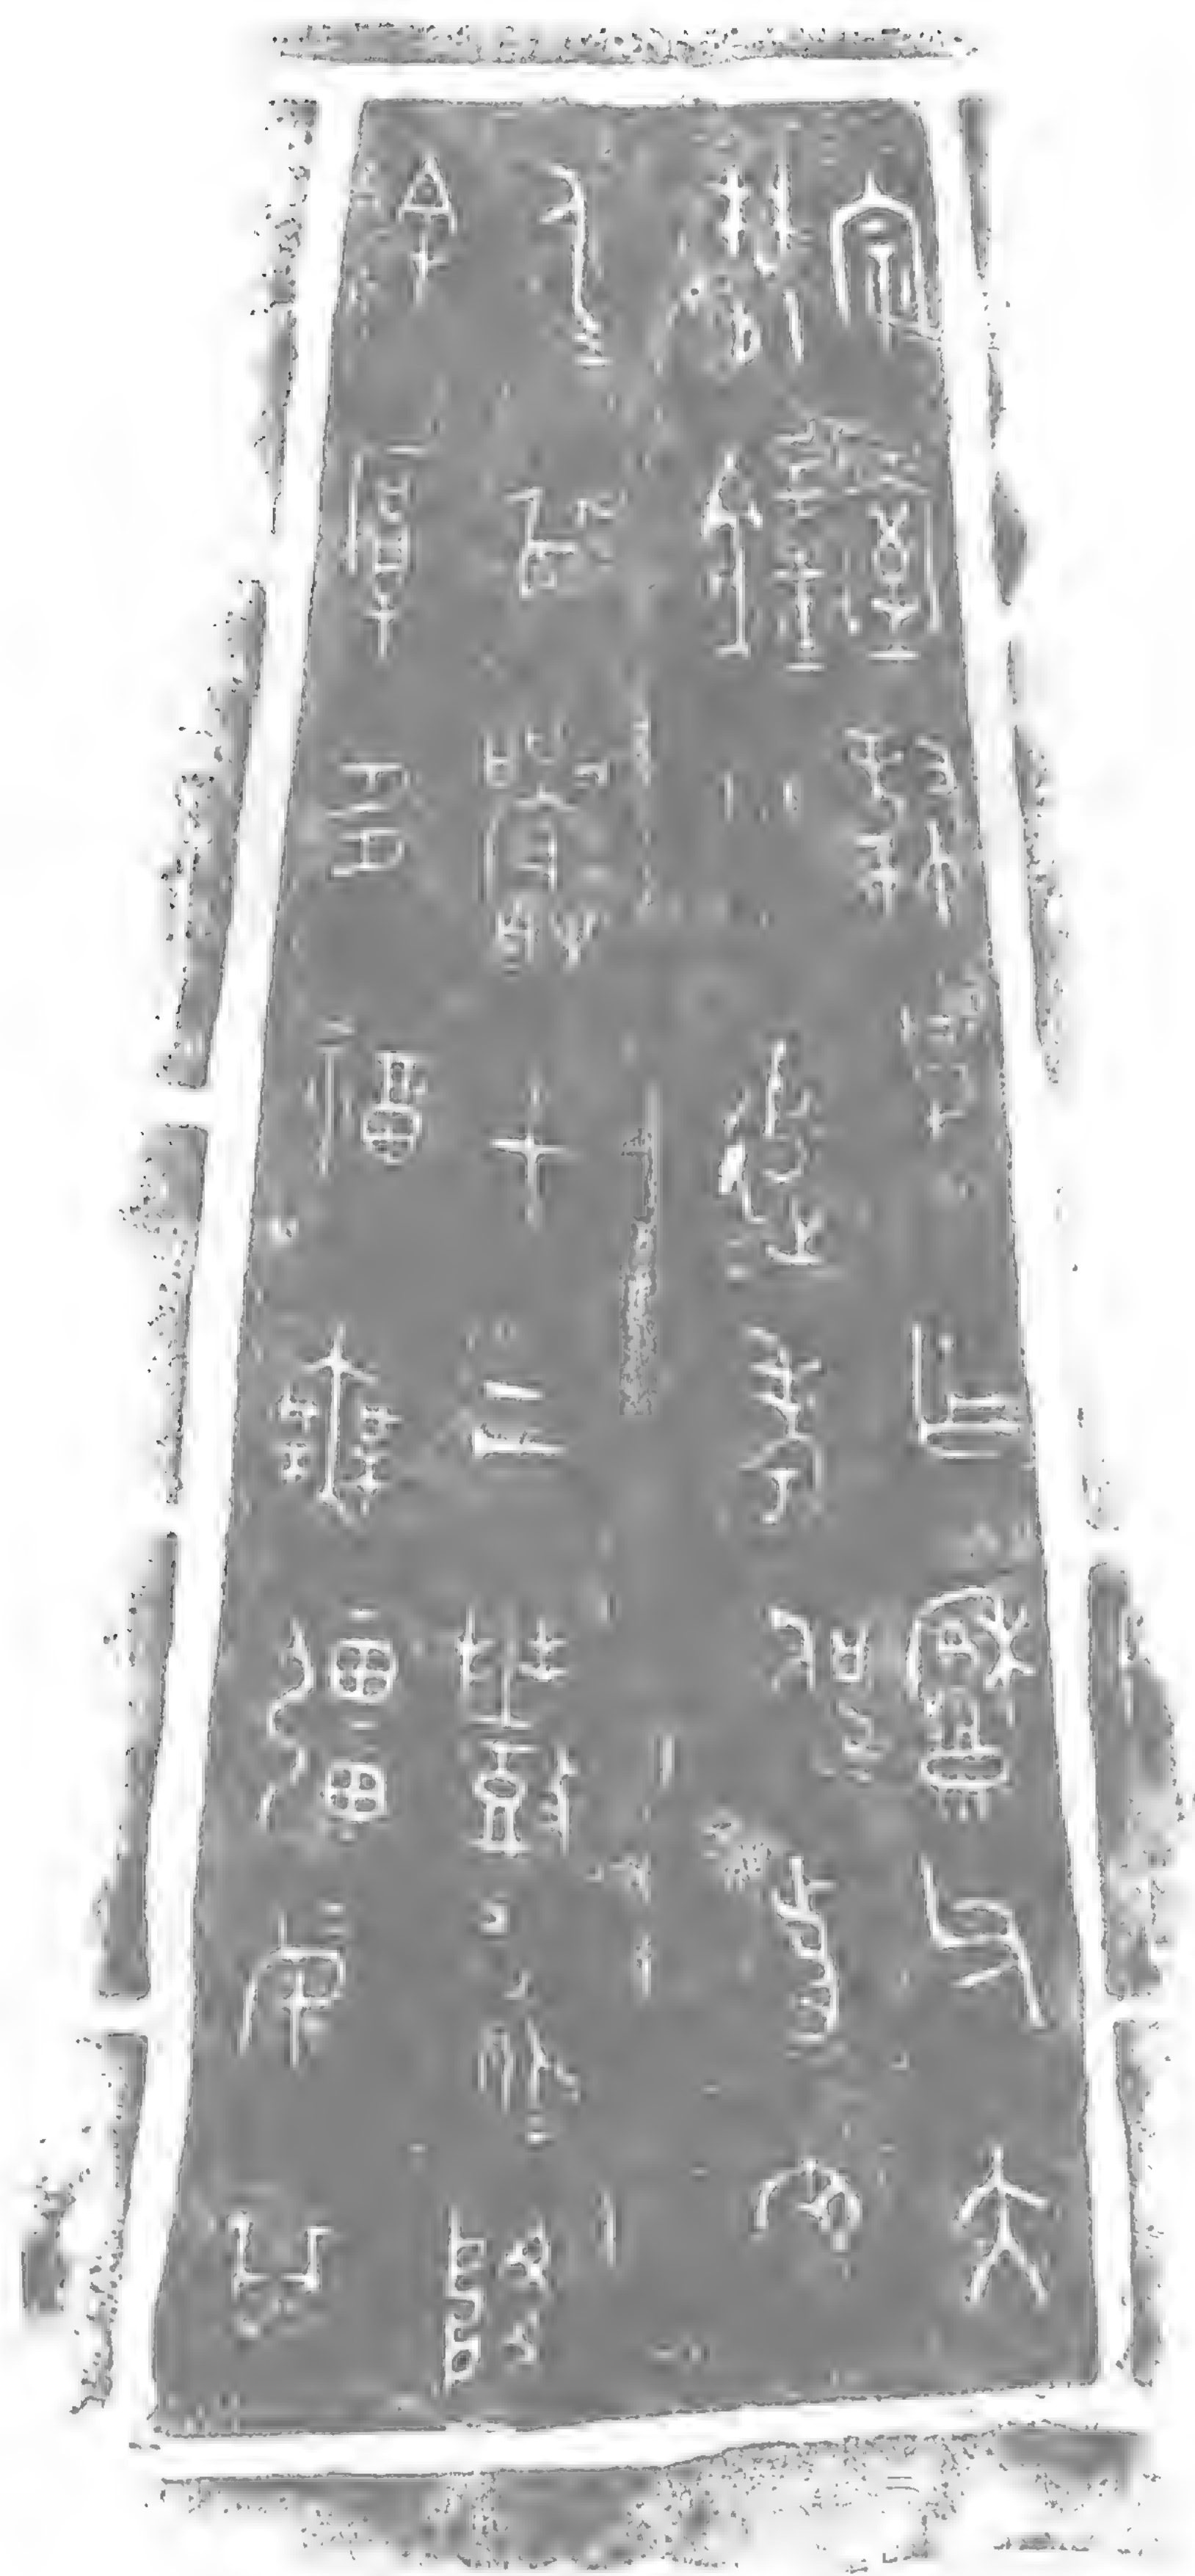 宗室肆妄乍龢父大
林鐘用追孝侃前文
人其嚴在上數橐降
余厚多福無疆妄其